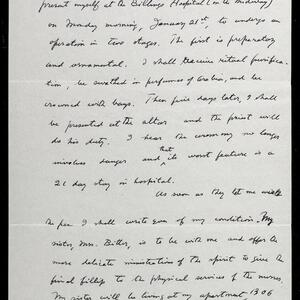 present myself at the Billings Hospital (on the Midway)
on Monday morning, January 21st, to undergo an
operation in two stages. The first is preparatory
and ornamental. I shall receive ritual purifica-
tion, be swathed in perfumes of Arabia, and be
crowned with bays. Then five days later, I shall
be presented at the altar and the priest will
do his duty. I hear the ceremony no longer
involves danger and that its worst feature is a
21 day stay in hospital.
As soon as they let me
the pen I shall write Eva of my condition. My
sister, Mrs. Butler, is to be with me and offer the
more delicate ministrations of the spirit to give the
final fillip to the physical services of the nurses.
My sister will be living at my apartment, 1306